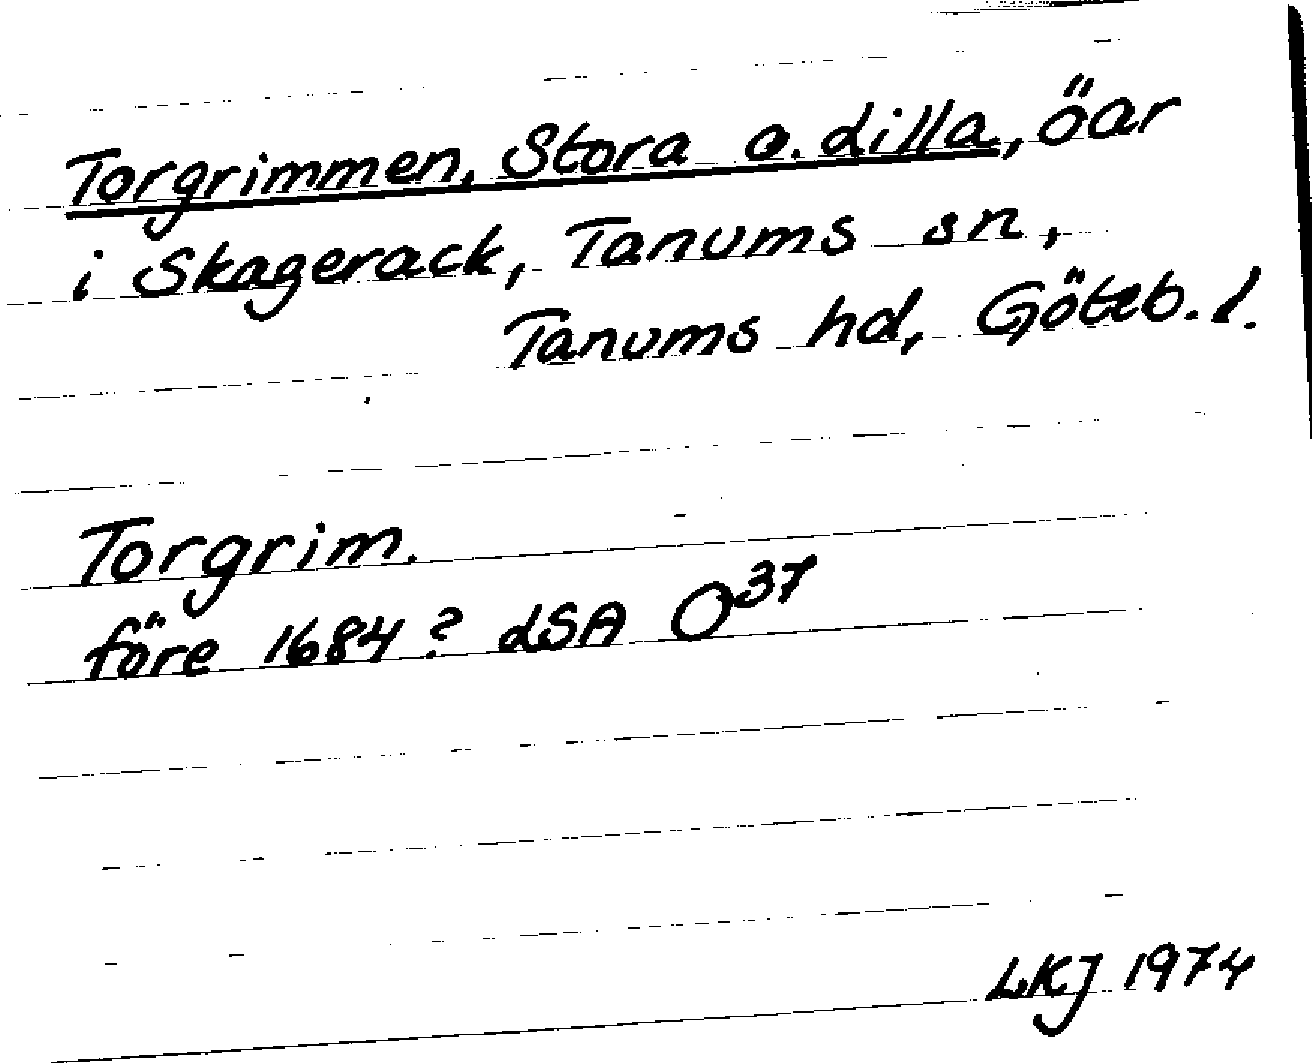 Torgrimmen, Stora o. Lilla, öar
i Skagerack, Tanums sn,
Tanums hd, Göteb. l.
Torgrim.
före 1684? LSA O³⁷
LKJ 1974